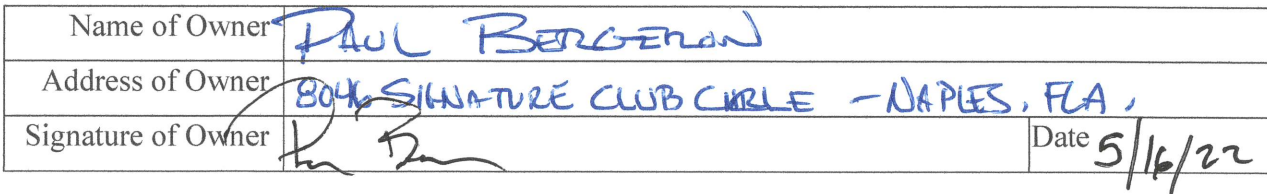 Name of Owner PAUL BERGERON
Address of Owner 8046 SIGNATURE CLUB CIRCLE - NAPLES, FLA.
Signature of Owner Date 5/16/22